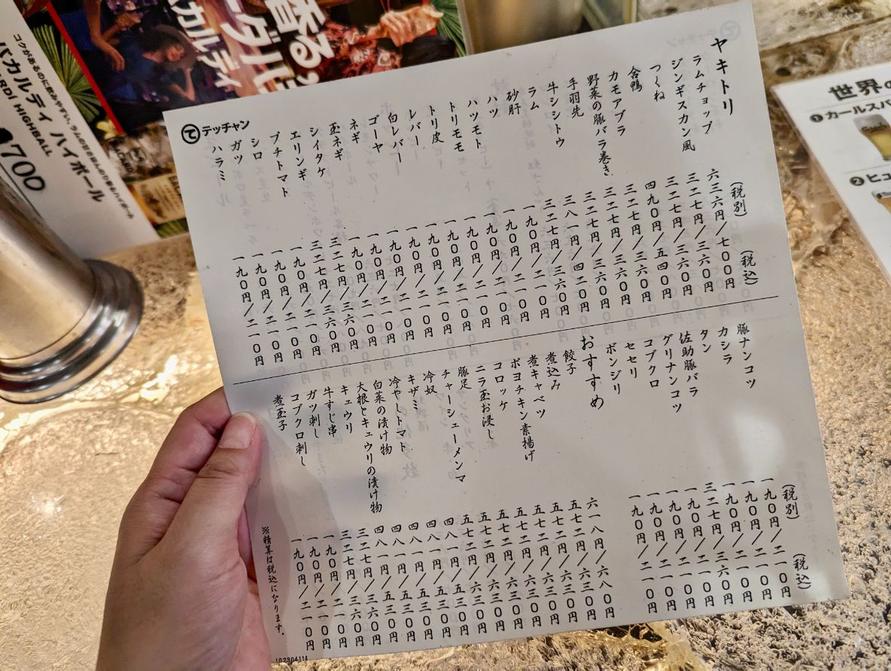 テッチャン
ヤキトリ (税別) (税込)
ラムチョップ 六三六円/七〇〇円
ジンギスカン風 三二七円/三六〇円
つくね 三二七円/三六〇円
合鴨 四九〇円/五四〇円
カモアブラ 三二七円/三六〇円
野菜の豚バラ巻き 三二七円/三六〇円
手羽先 三二七円/三六〇円
牛シシトウ 三八一円/四二〇円
ラム 三二七円/三六〇円
砂肝 一九〇円/二一〇円
ハツ 一九〇円/二一〇円
ハツモト 一九〇円/二一〇円
トリモモ 一九〇円/二一〇円
トリ皮 一九〇円/二一〇円
レバー 一九〇円/二一〇円
白レバー 一九〇円/二一〇円
ゴーヤ 一九〇円/二一〇円
ネギ 一九〇円/二一〇円
玉ネギ 一九〇円/二一〇円
シイタケ 三二七円/三六〇円
エリンギ 三二七円/三六〇円
プチトマト 一九〇円/二一〇円
シロ 一九〇円/二一〇円
ガツ 一九〇円/二一〇円
ハラミ 一九〇円/二一〇円
(税別) (税込)
豚ナンコツ 一九〇円/二一〇円
カシラ 一九〇円/二一〇円
タン 一九〇円/二一〇円
佐助豚バラ 三二七円/三六〇円
グリナンコツ 一九〇円/二一〇円
コブクロ 一九〇円/二一〇円
セセリ 一九〇円/二一〇円
ボンジリ 一九〇円/二一〇円
おすすめ
餃子 六一八円/六八〇円
煮込み 五七二円/六三〇円
煮キャベツ 五七二円/六三〇円
ポヨチキン素揚げ 五七二円/六三〇円
コロッケ 五七二円/六三〇円
ニラ玉お浸し 五七二円/六三〇円
豚足 五七二円/六三〇円
チャーシューメンマ 五七二円/六三〇円
冷奴 四八一円/五三〇円
キザミ 四八一円/五三〇円
冷やしトマト 四八一円/五三〇円
白菜の漬け物 四八一円/五三〇円
大根とキュウリの漬け物 四八一円/五三〇円
キュウリ 三二七円/三六〇円
牛すじ串 三二七円/三六〇円
ガツ刺し 一九〇円/二一〇円
コブクロ刺し 一九〇円/二一〇円
煮玉子 一九〇円/二一〇円
※精算は税込になります。
香る
バカルディ ハイボール
HIGHBALL
700
世界の
❶カールスバ
❷ヒュ